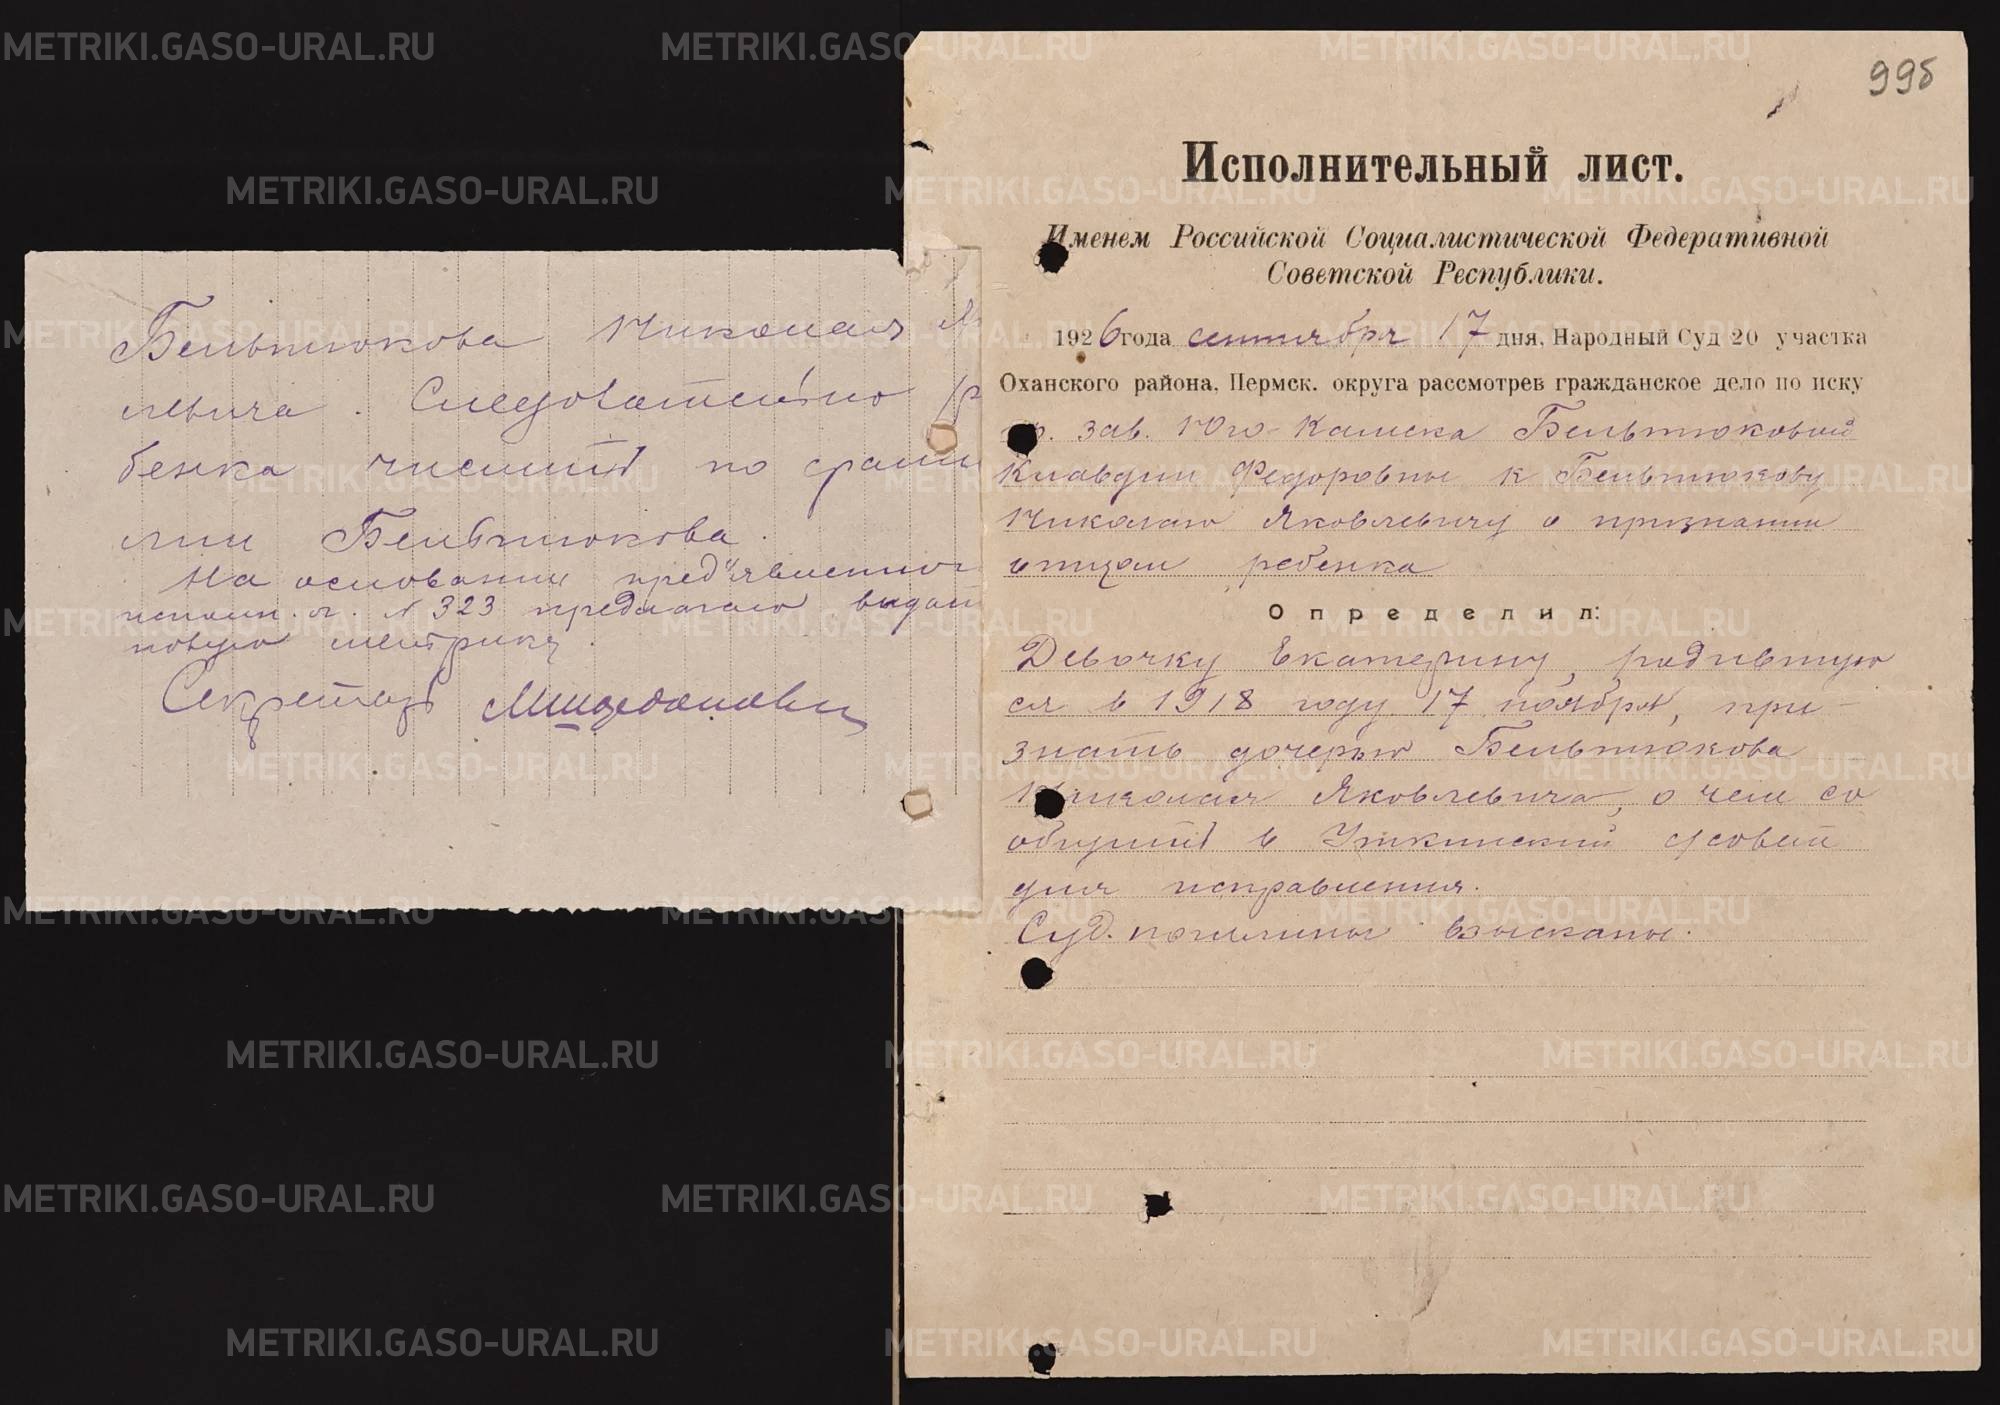 Бельтюкова Николая Як
левича. Следовательно ре
бенка числить по фами
лии Бельтюкова.
На основании пред'явленного
исполн. л. № 323 предлагаю выдать
новую метрику.
Секретарь
995
Исполнительный лист.
Именем Российской Социалистической Федеративной
Советской Республики.
1926 года сентября 17 дня, Народный Суд 20 участка
Оханского района, Пермск. округа рассмотрев гражданское дело по иску
гр. зав. Юго-Камска Бельтюковой
Клавдии Федоровны к Бельтюкову
Николаю Яковлевичу о признании
отцом ребенка
Определил:
Девочку Екатерину, родившую
ся в 1918 году 17 ноября, при-
знать дочерью Бельтюкова
Николая Яковлевича, о чем со
общить в Уткинский с/совет
для исправления.
Суд. пошлины взысканы.
METRIKI.GASO-URAL.RU